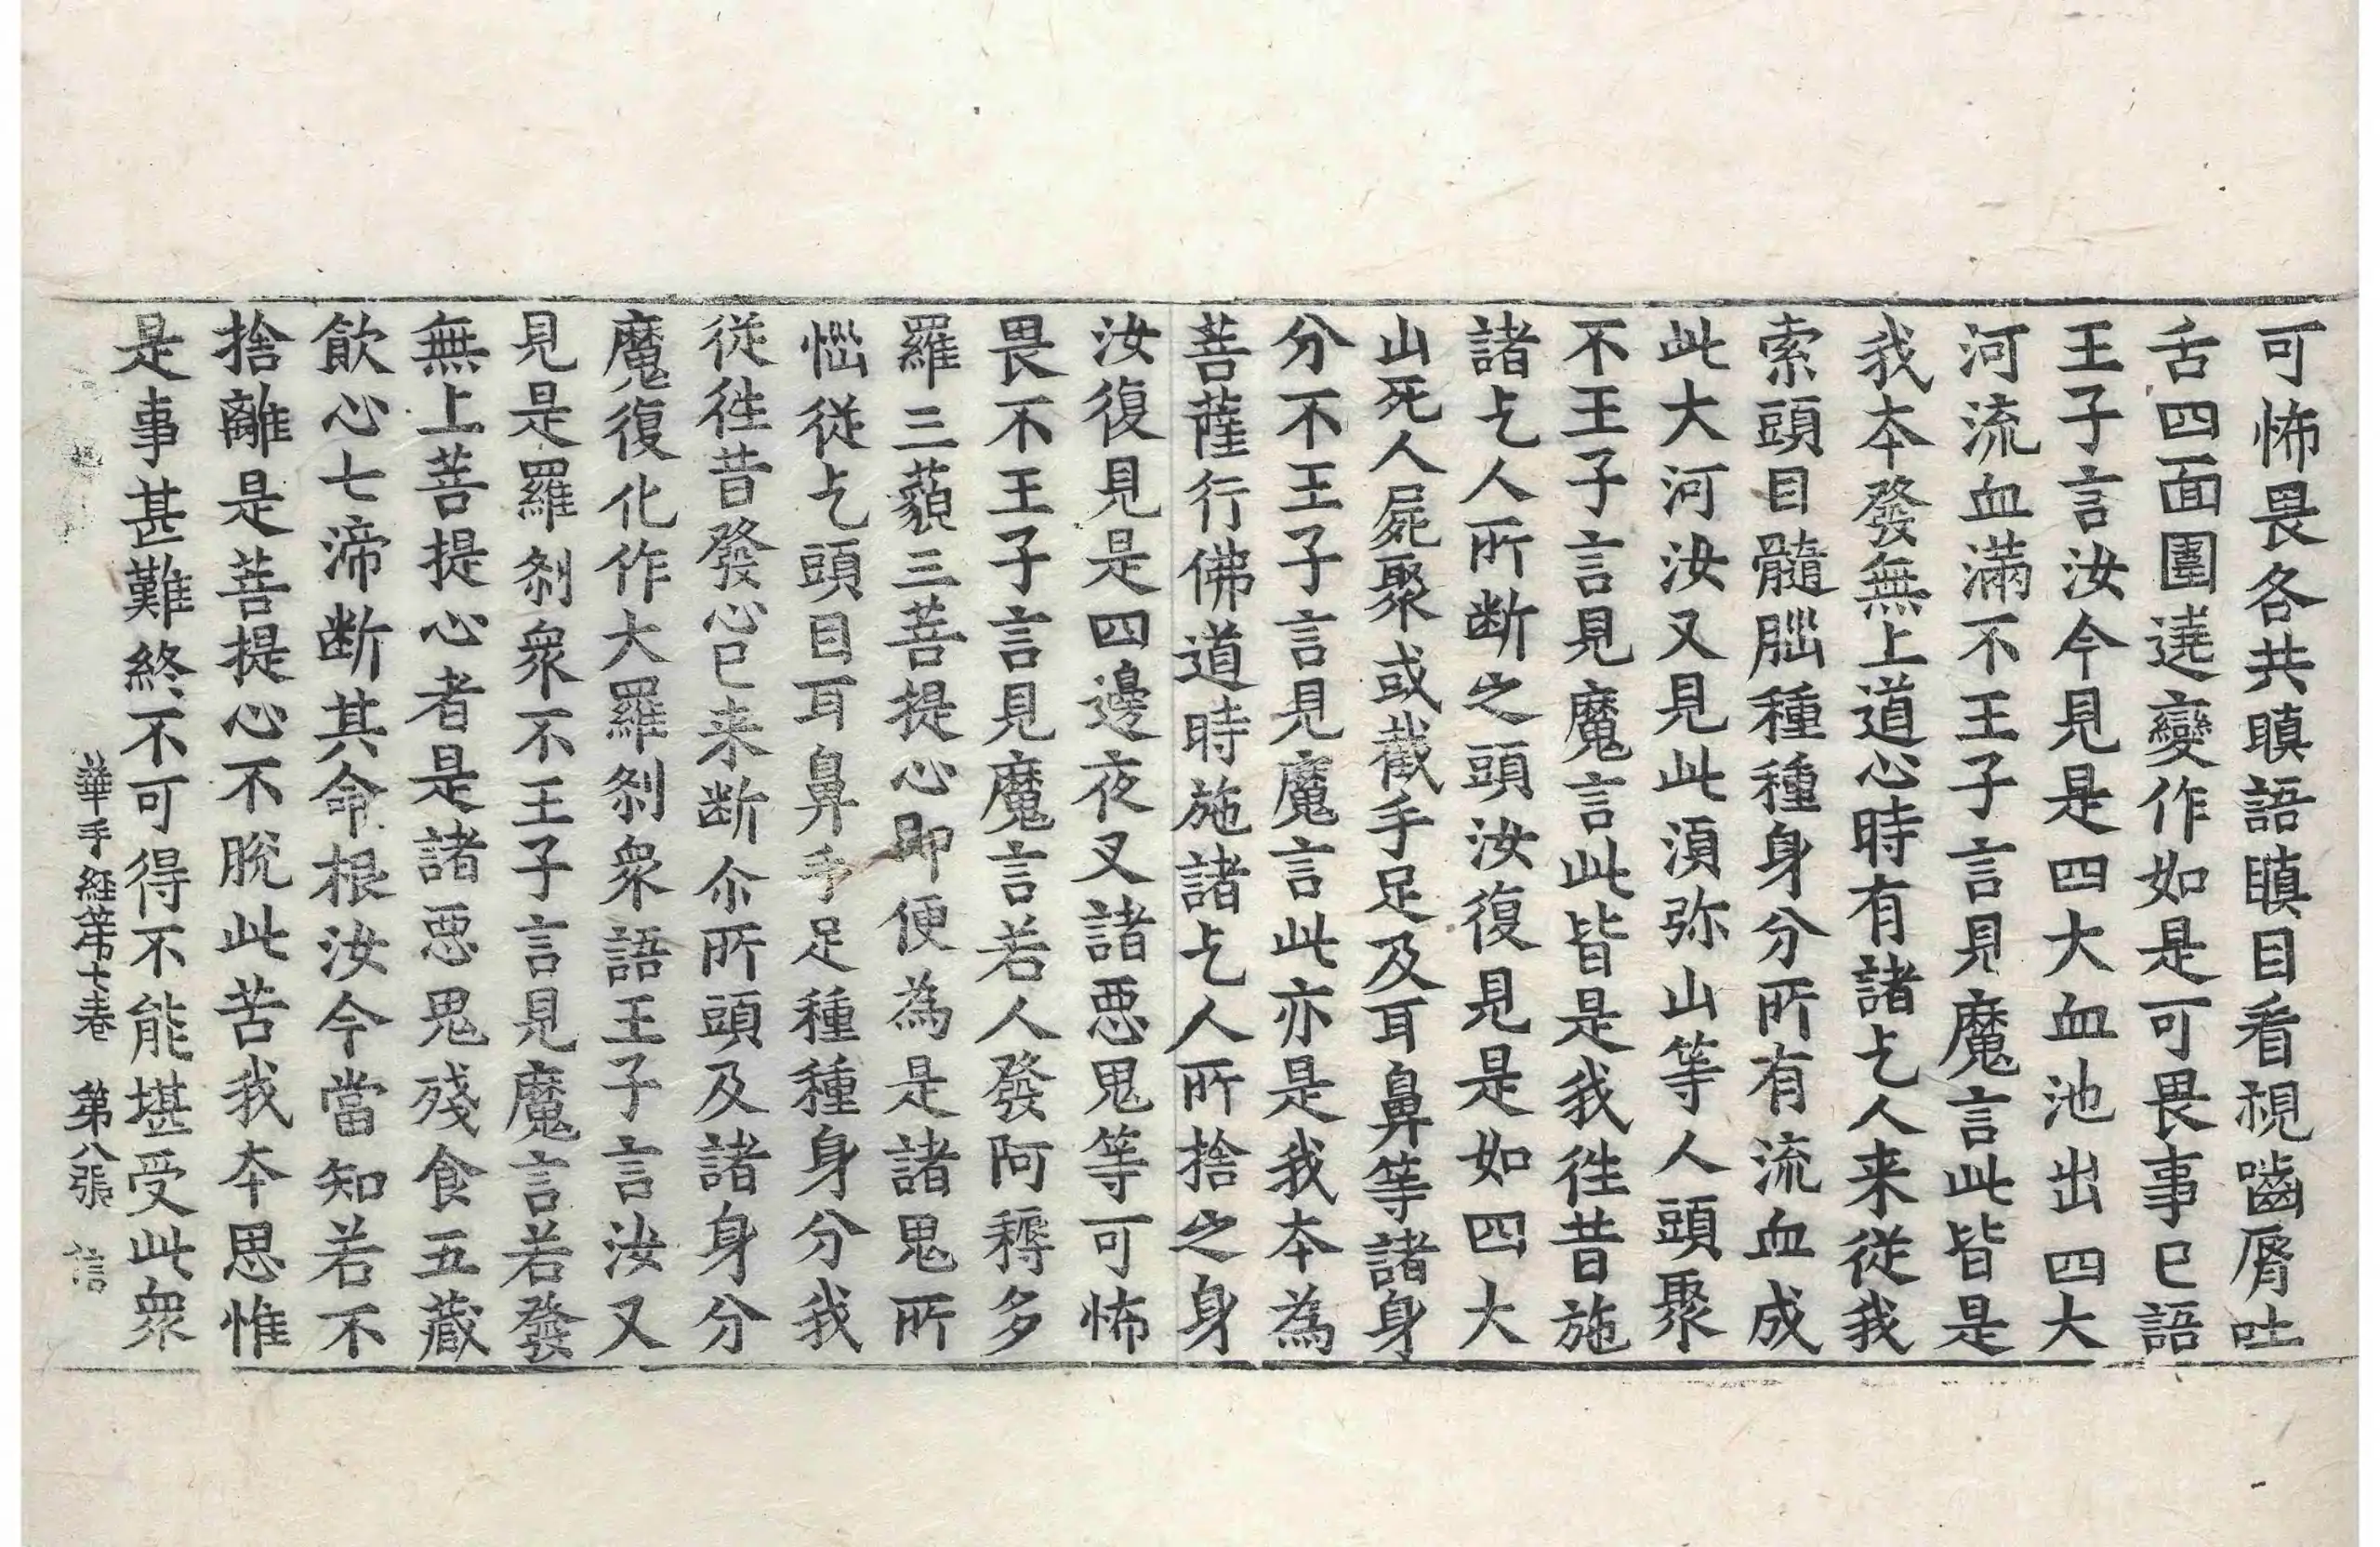 可怖畏各共瞋語瞋目看視嚙脣吐
舌四面圍遶變作如是可畏事已語
王子言汝今見是四大血池出四大
河流血滿不王子言見魔言此皆是
我本發無上道心時有諸乞人来從我
索頭目髓𦛁種種身分所有流血成
此大河汝又見此湏弥山等人頭聚
不王子言見魔言此皆是我徃昔施
諸乞人所断之頭汝復見是如四大
山死人屍聚或截手足及耳鼻等諸身
分不王子言見魔言此亦是我本為
菩薩行佛道時施諸乞人所捨之身
汝復見是四邊夜叉諸悪鬼等可怖
畏不王子言見魔言若人發阿耨多
羅三藐三菩提心即便為是諸鬼所
惱従乞頭目耳鼻手足種種身分我
従徃昔發心已来断尒所頭及諸身分
魔復化作大羅刹衆語王子言汝又
見是羅刹衆不王子言見魔言若發
無上菩提心者是諸悪鬼殘食五藏
飲心七渧断其命根汝今當知若不
捨離是菩提心不脫此苦我本思惟
是事甚難終不可得不能堪受此衆
華手経第七卷 第八張 信